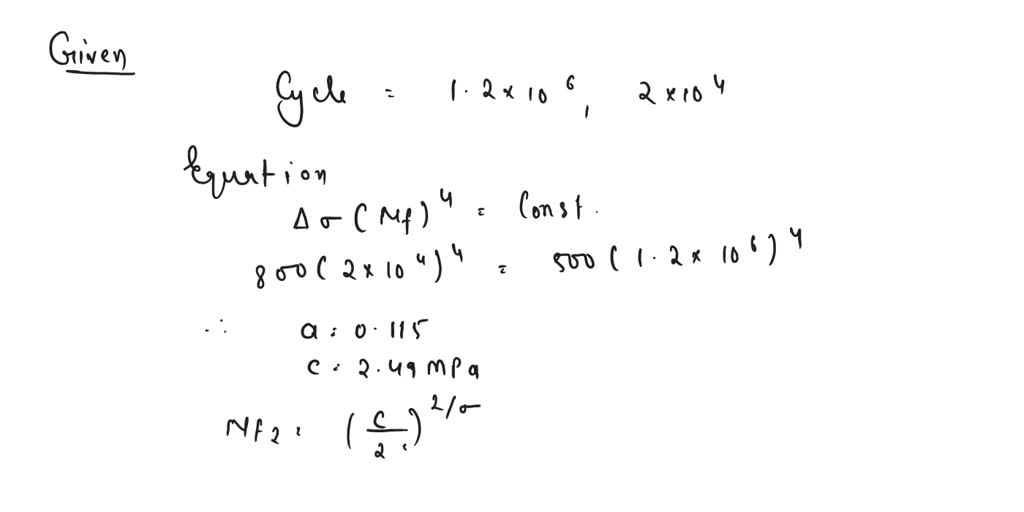 Given
Cycle = 1.2 × 10^6, 2 × 10^4
Equation
Δσ (Nf)^4 = Const.
800 ( 2 × 10^4 )^4 = 500 ( 1.2 × 10^6 )^4
∴ a = 0.115
c = 2.49 MPa
Nf2 = (c/2)^2/σ